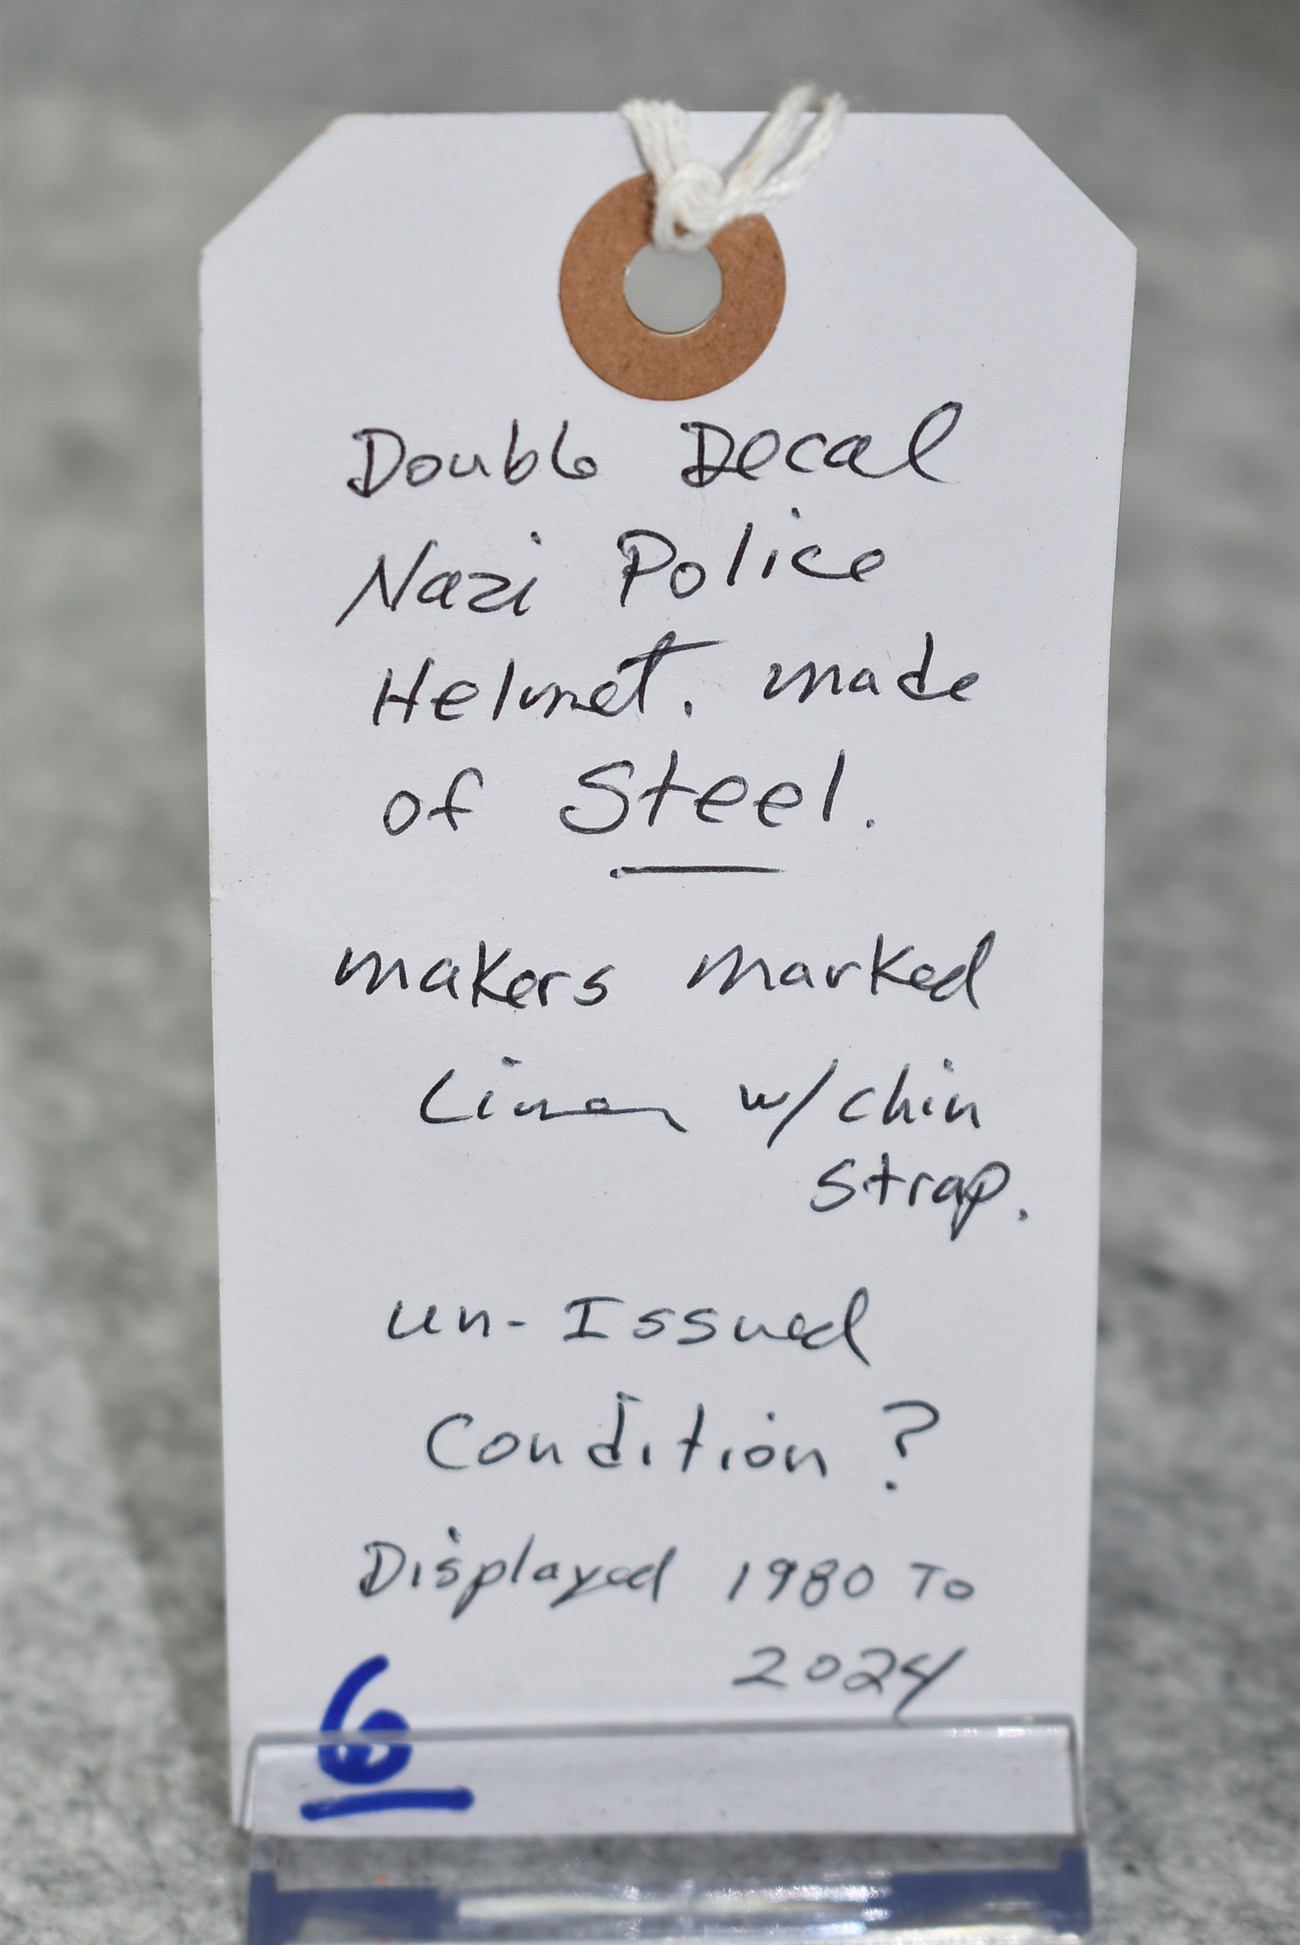 Double Decal
Nazi Police
Helmet. made
of Steel.
makers marked
Liner w/chin
strap.
un-Issued
Condition?
Displayed 1980 To
2024
6